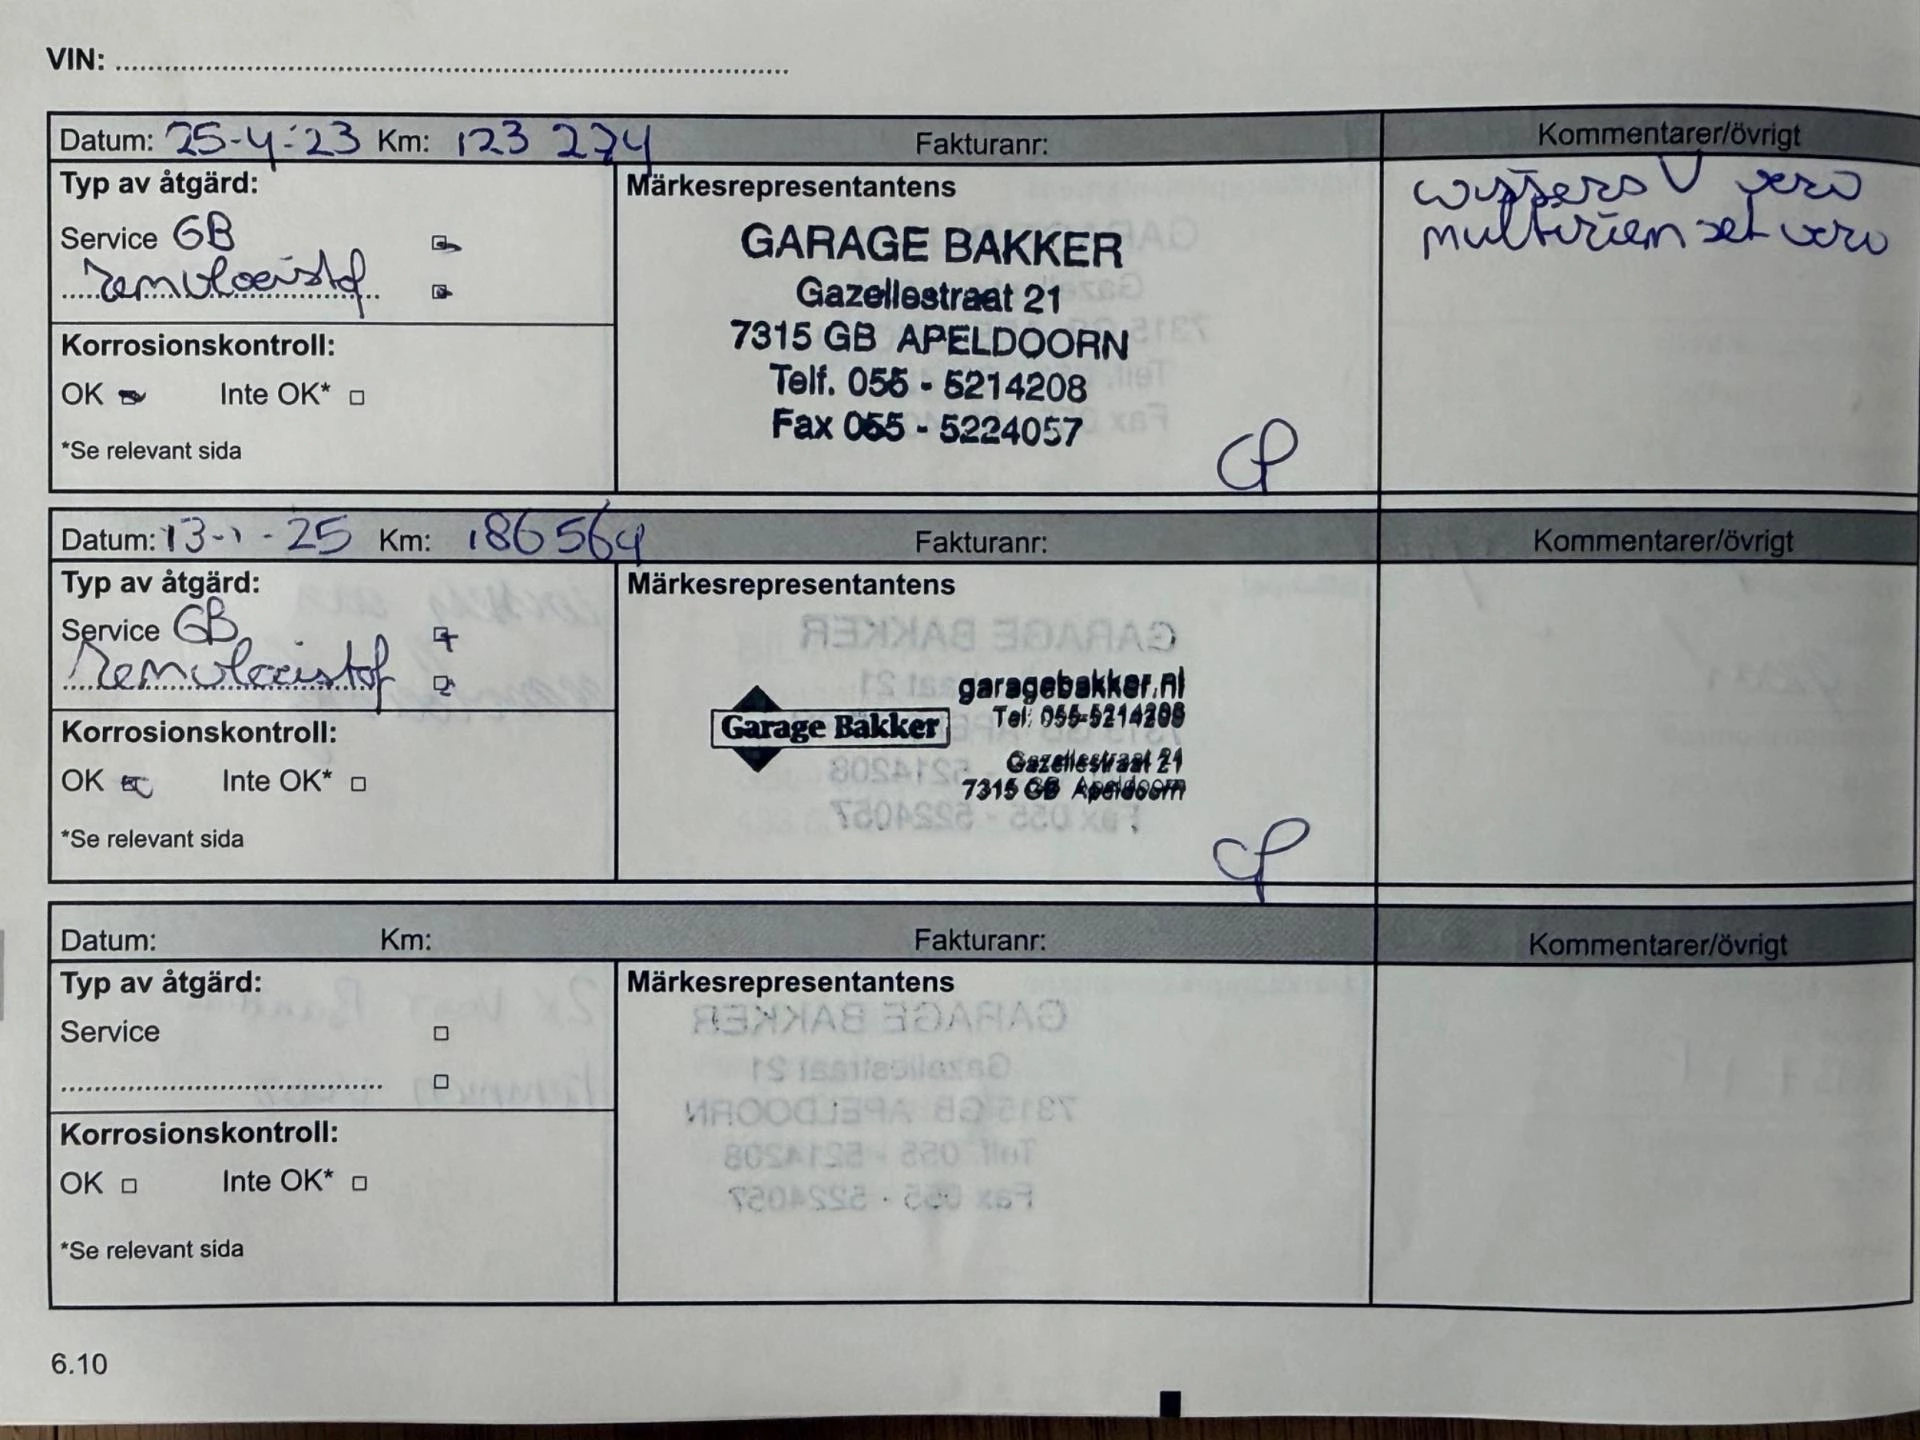 VIN: ........................................
Datum: 25-4-'23 Km: 123 274 Fakturanr: Kommentarer/övrigt
Typ av åtgärd:
Service GB
remvloeistof
Korrosionskontroll:
OK Inte OK*
*Se relevant sida
Märkesrepresentantens
GARAGE BAKKER
Gazellestraat 21
7315 GB APELDOORN
Telf. 055 - 5214208
Fax 055 - 5224057
wissers V verv
multiriem set verv
Datum: 13-1-25 Km: 186564 Fakturanr: Kommentarer/övrigt
Typ av åtgärd:
Service GB
Remvloeistof
Korrosionskontroll:
OK Inte OK*
*Se relevant sida
Märkesrepresentantens
Garage Bakker
garagebakker.nl
Tel. 055-5214208
Gazellestraat 21
7315 GB Apeldoorn
Datum: Km: Fakturanr: Kommentarer/övrigt
Typ av åtgärd:
Service
........................................
Korrosionskontroll:
OK Inte OK*
*Se relevant sida
Märkesrepresentantens
6.10